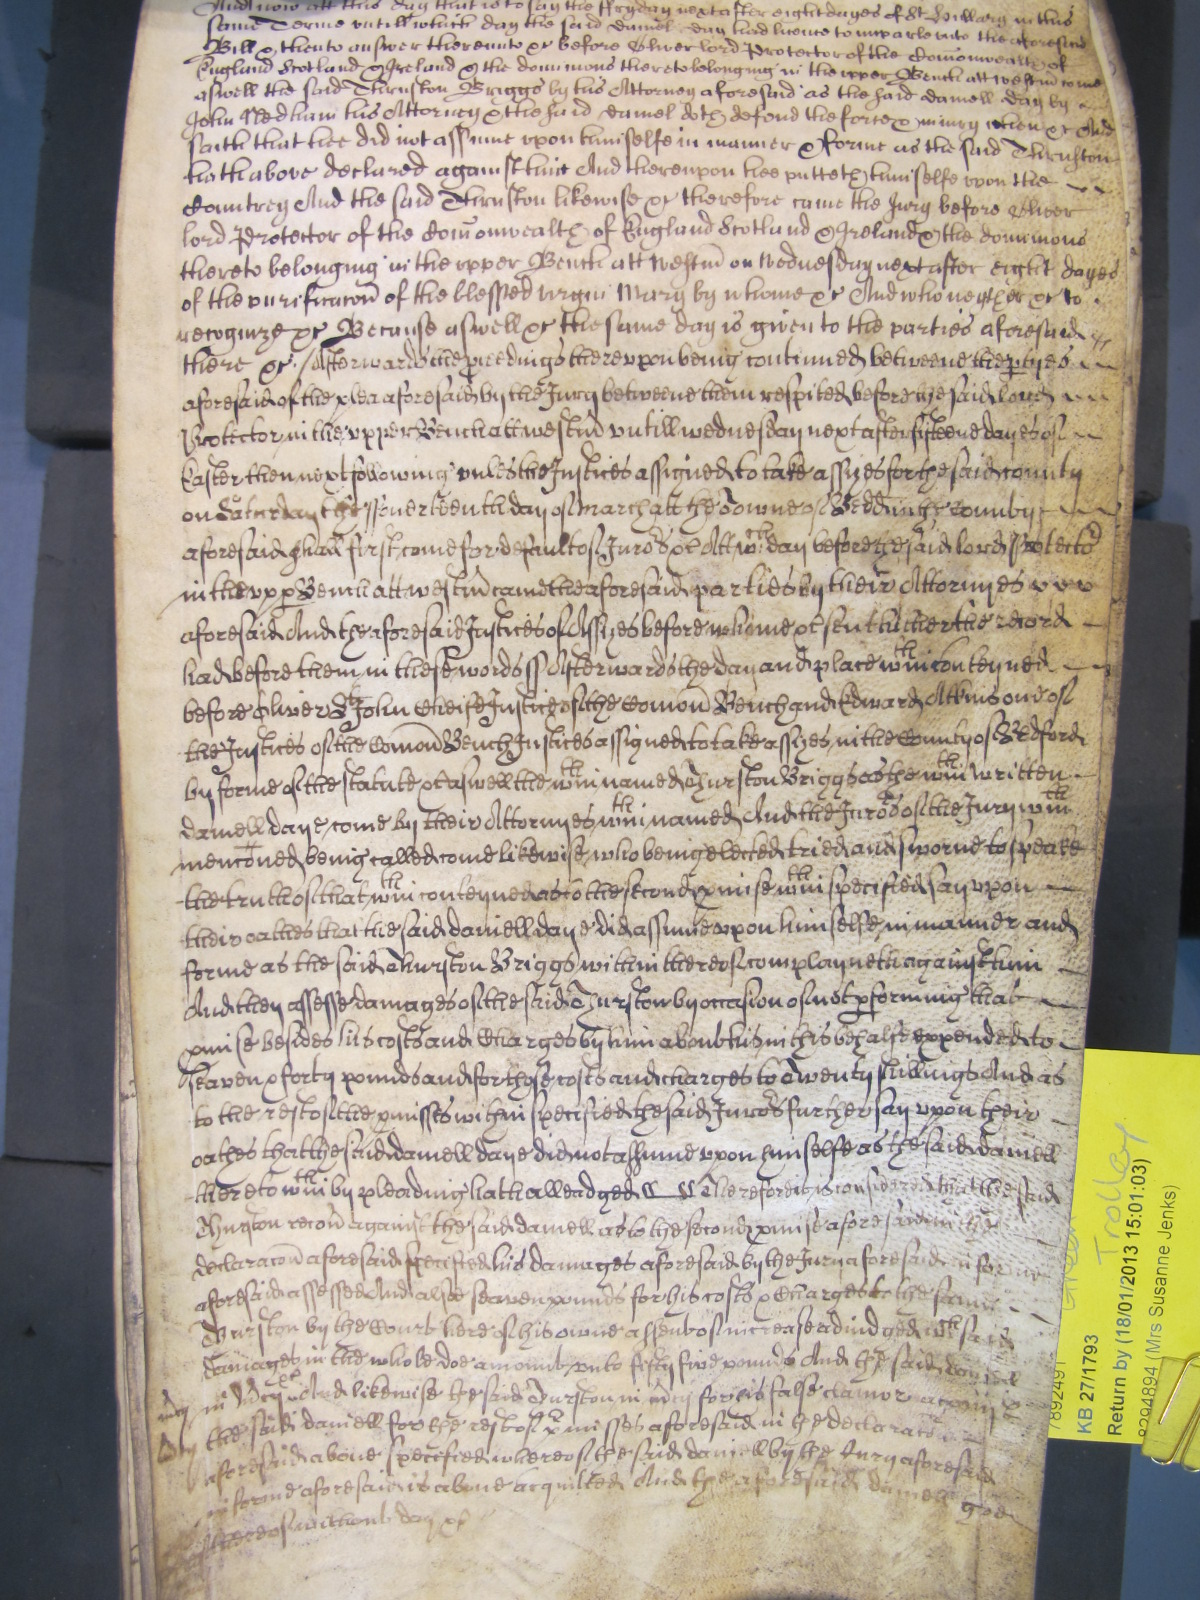 And now att this day that is to say the ffryday next after eight dayes of St Hillary in this
same Terme untill which day the said Daniel Day had licence to imparle unto the aforesaid
Bill & then to answer thereunto &c before Oliver lord Protector of the Comonwealth of
England Scotland & Ireland & the dominions thereto belonging in the upper Bench att Westm come
aswell the said Thurston Briggs by his Attorney aforesaid as the said Daniell Day by
John Nedham his Attorney & the said Daniel doth defend the force & iniury when &c And
saith that hee did not assume upon himselfe in manner & forme as the said Thurston
hath above declared against him And thereupon hee putteth himselfe upon the
Countrey And the said Thurston likewise &c therefore came the Jury before Oliver
lord Protector of the Comonwealth of England Scotland & Ireland & the dominions
thereto belonging in the upper Bench att Westm on Wednesday next after eight dayes
of the purificacon of the blessed virgin Mary by whome &c And who neyther &c to
recognize &c Because aswell &c the same day is given to the parties aforesaid
there &c / Afterwards the pceedings thereupon being continued betweene the ptyes
aforesaid of the plea aforesaid by the Jury betweene them respited before the said lord
Protector in the upper Bench att Westm untill Wednesday next after fifteene dayes of
Easter then next following unles the Justices assigned to take assizes for the said County
on Saturday the seventeenth day of March att the Towne of Bedd in the County
aforesaid shall first come for default of Jurors &c Att wch day before the said lord Protector
in the upp Bench att Westm came the aforesaid parties by their Attornyes
aforesaid And the aforesaid Justices of Assizes before whome &c sent hither the record
had before them in these words ss Afterwards the day and place wthin conteyned
before Oliver St John Cheife Justice of the Comon Bench and Edward Atkins one of
the Justices of the Comon Bench Justices assigned to take assizes in the County of Bedford
by forme of the statute &c aswell the wthin named Thurston Briggs as the wthin written
Daniell Daye come by their Attornyes wthin named And the Jurors of the Jury wthin
menconed being called come likewise who being elected tried and sworne to speake
the truth of that wthin conteyned as to the second pmise wthin specified say upon
their oathes that the said Daniell Daye did assume upon himselfe in manner and
forme as the said Thurston Briggs within thereof complayneth against him
And they assesse damages of the said Thurston by occasion of not pforming that
pmise besides his costs and Charges by him about his suit in this behalfe expended to
seaven & forty pounds and for those costs and charges to Twenty shillings And as
to the rest of the pmisses within specified the said Jurors further say upon their
oathes that the said Daniell Daye did not assume upon himselfe as the said Daniell
thereto wthin by pleading hath alleadged Therefore it is considered that the said
Thurston recov against the said Daniell as to the second pmise aforesaid in the
declaracon aforesaid specified his damages aforesaid by the Jury aforesaid in forme
aforesaid assessed And also seaven pounds for his costs & Charges to the same
Thurston by the Court here of his owne assent of increase adiudged wch said
damages in the whole doe amount unto fifty five pounds And the said Daniell
in mcy &c And likewise the said Thurston in mcy for his false clamor against
the said Daniell for the rest of pmisses aforesaid in the declaracon
aforesaid above specified whereof the said Daniell by the Jury aforesaid
in forme aforesaid is above acquitted And the aforesaid Daniell goe
thereof without day &c
mcy
Trolley
7892491
KB 27/1793
Return by (18/01/2013 15:01:03)
8294894 (Mrs Susanne Jenks)